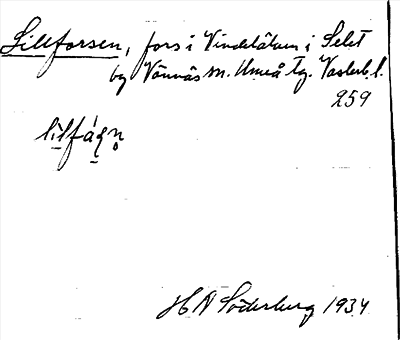 Lillforsen, fors i Vindelälven i Selet
by Vännäs sn. Umeå tg. Västerb. l.
259
lìlfáʂn̥
H N Söderberg 1934